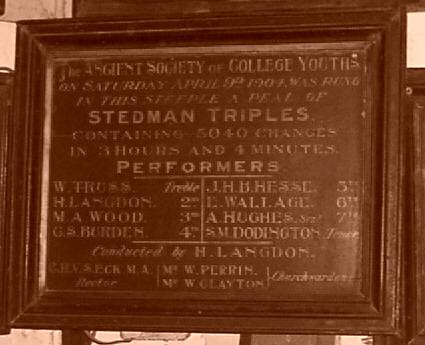 The ANCIENT SOCIETY OF COLLEGE YOUTHS.
ON SATURDAY APRIL 9th 1904, WAS RUNG
IN THIS STEEPLE A PEAL OF
STEDMAN TRIPLES.
CONTAINING 5040 CHANGES
IN 3 HOURS AND 4 MINUTES.
PERFORMERS
W. TRUSS. Treble J.H.B. HESSE. 5th
H. LANGDON. 2nd E. WALLAGE. 6th
M.A. WOOD. 3rd A. HUGHES, Senr 7th
G.S. BURDEN. 4th S.M. DODINGTON. Tenor
Conducted by H. LANGDON.
S. ECK M.A. Mr W. PERRIN. Churchwardens
Rector Mr W. CLAYTON.